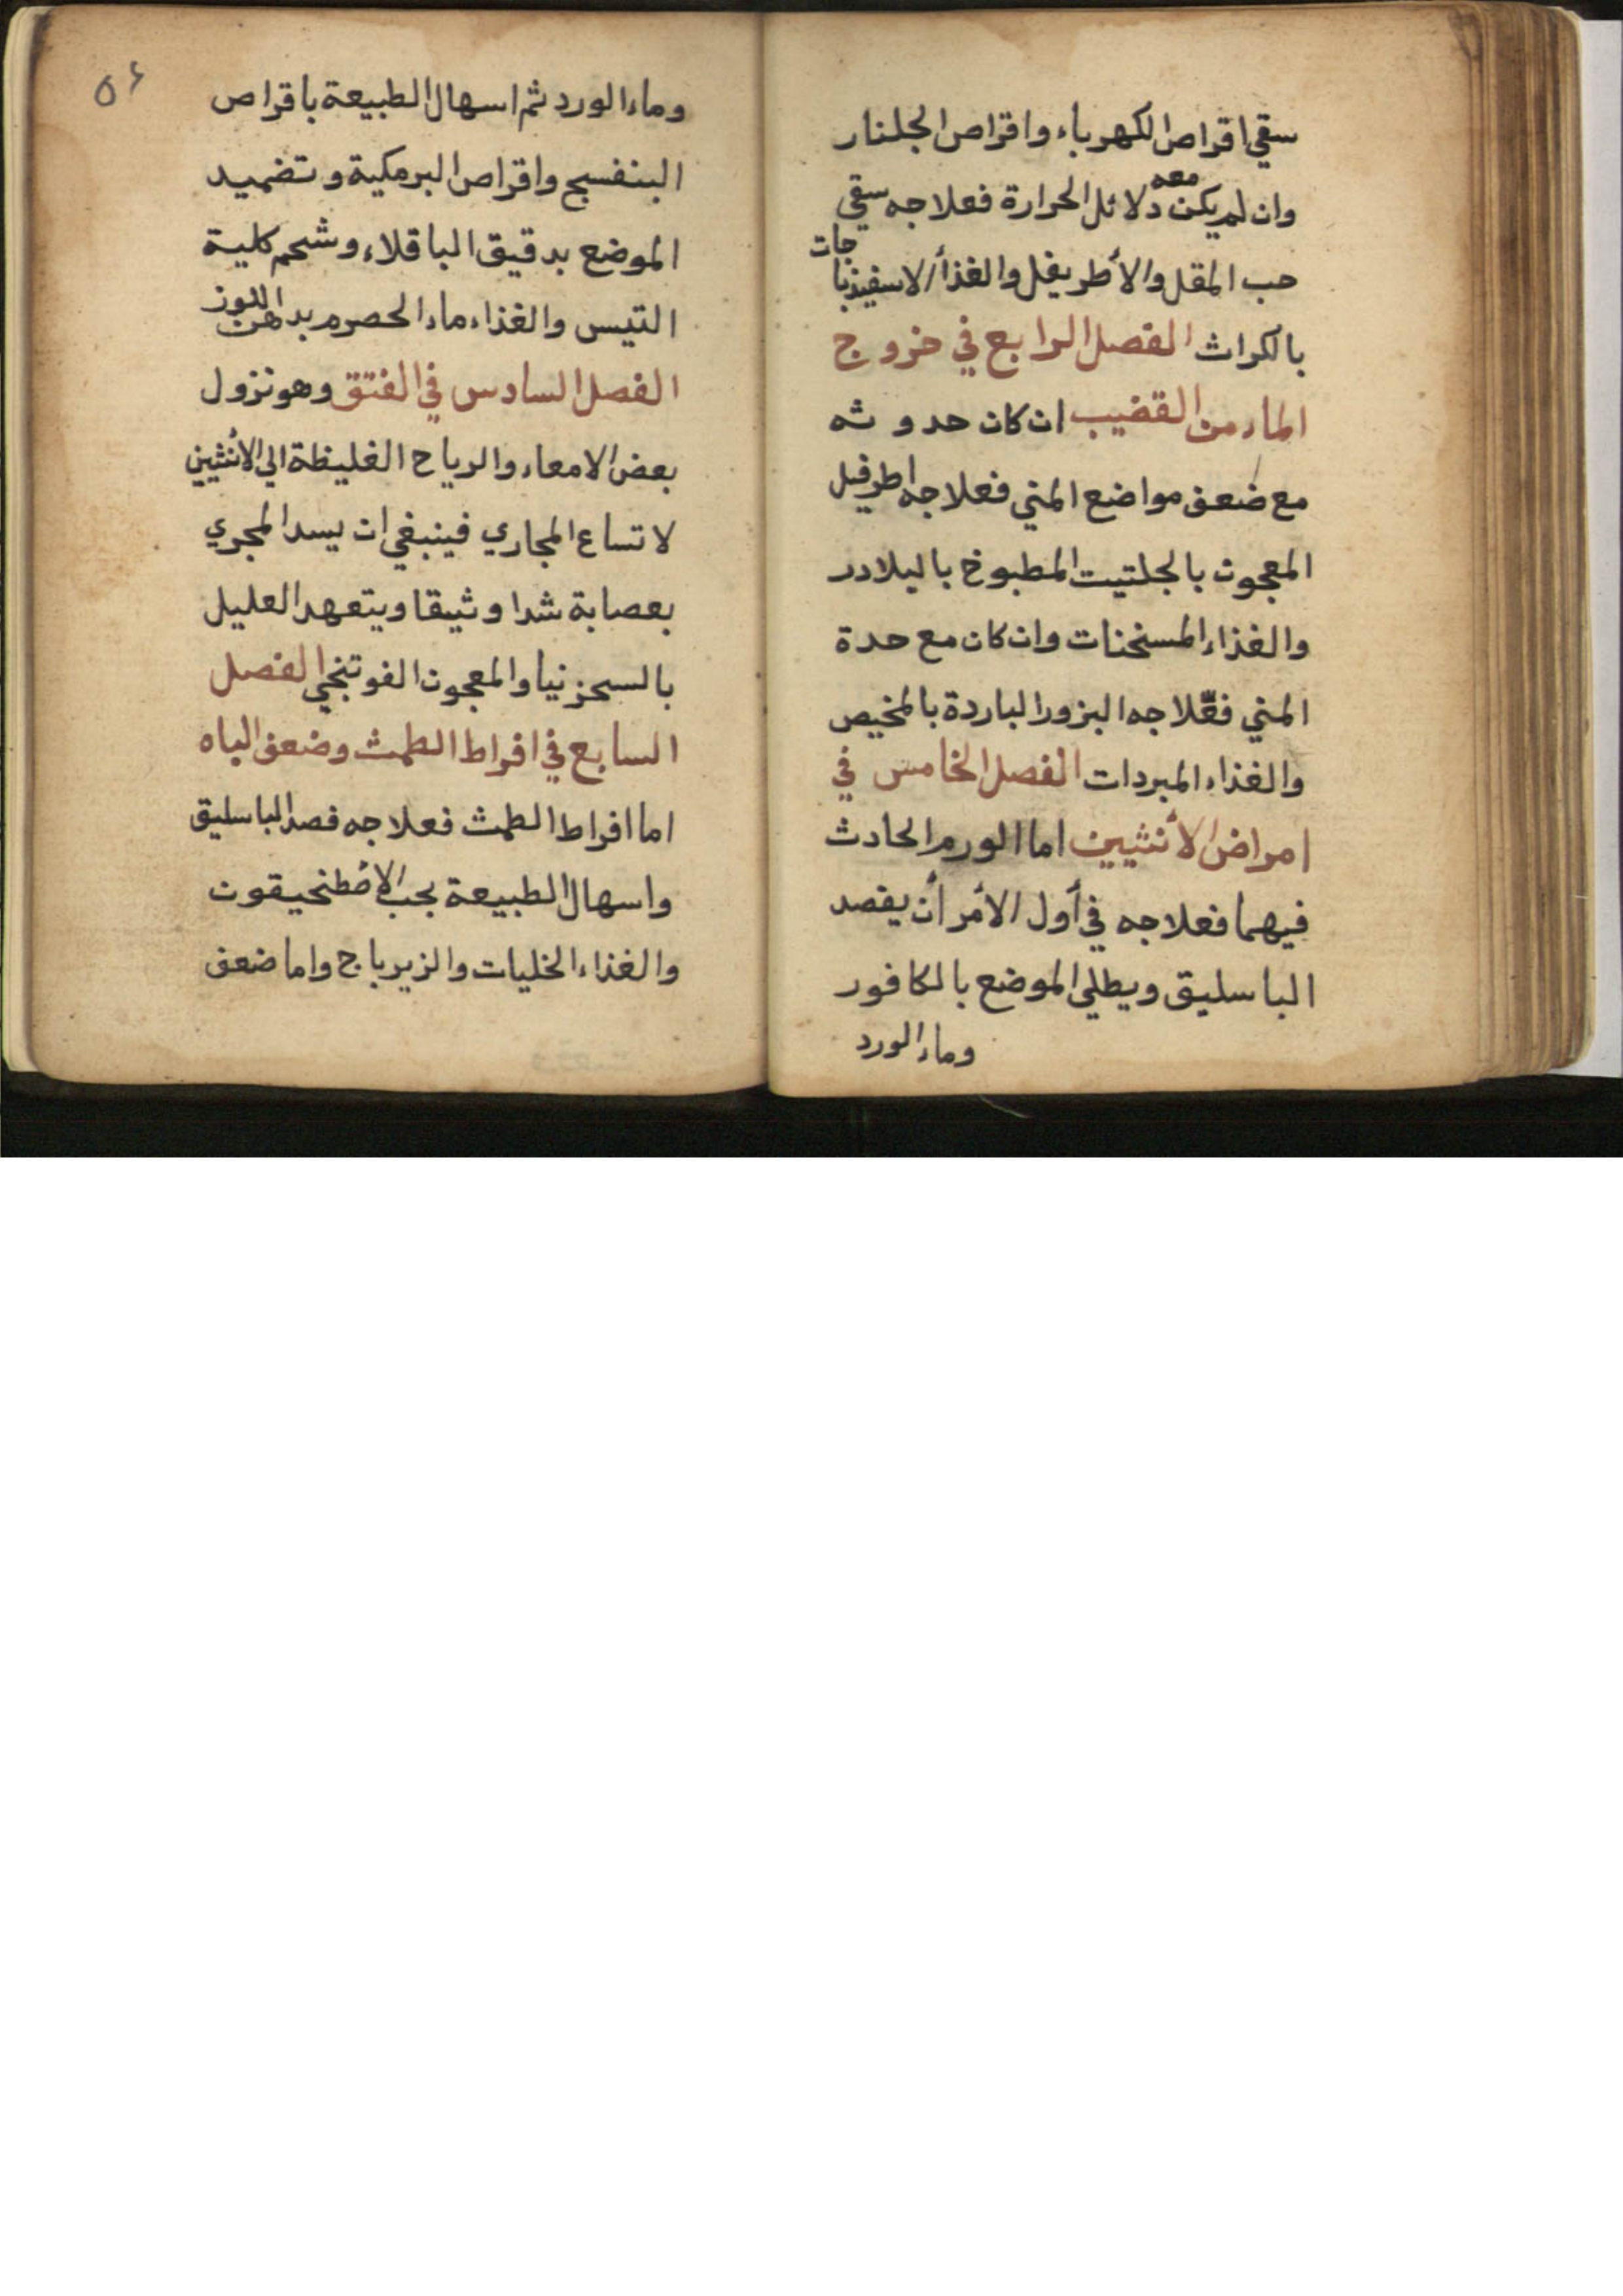 سقي اقراص الكهرباء واقراص الجلنار
وان لم يكن معه دلائل الحرارة فعلاجه سقي
حب المقل والأطريفل والغذأ الاسفيذباجات
بالكراث الفصل الرابع في خروج
الماء من القضيب ان كان حدوثه
مع ضعف مواضع المني فعلاجه اطرفيل
المعجون بالجلتيت المطبوخ بالبلادر
والغذاء المسخنات وان كان مع حدة
المني فعلاجه البزور الباردة بالمخيص
والغذاء المبردات الفصل الخامس في
امراض الأنثيين اما الورم الحادث
فيهما فعلاجه في أول الأمر أن يقصد
الباسليق ويطلي الموضع بالكافور
وماء الورد
٥٤
وماء الورد ثم اسهال الطبيعة باقراص
البنفسج واقراص البرمكية وتضميد
الموضع بدقيق الباقلاء وشحم كلية
التيس والغذاء ماء الحصرم بدهن اللوز
الفصل السادس في الفتق وهو نزول
بعض الامعاء والرياح الغليظة الي الأنثيين
لاتساع المجاري فينبغي ان يسد المجري
بعصابة شدا وثيقا ويتعهد العليل
بالسجزنيا والمعجون الفوتنجي الفصل
السابع في افراط الطمث وضعف الباه
اما افراط الطمث فعلاجه فصد الباسليق
واسهال الطبيعة بحب الاصطمخيقون
والغذاء الخليات والزيرباج واما ضعف